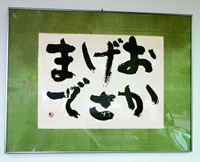 おか
げさ
まで